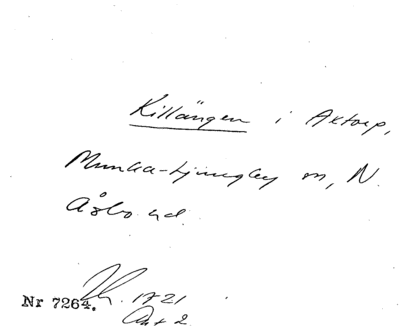 Killängen i Axtorp,
Munka-Ljungby sn, N.
Åsbo hd.
1721
Nr 7264.
Ant 2